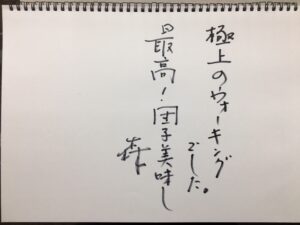 極上のウォーキング
でした。
最高!団子美味し
森